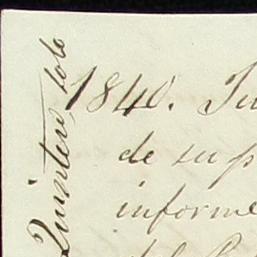 Quintero, solo
1840. Ju
de su p
informe